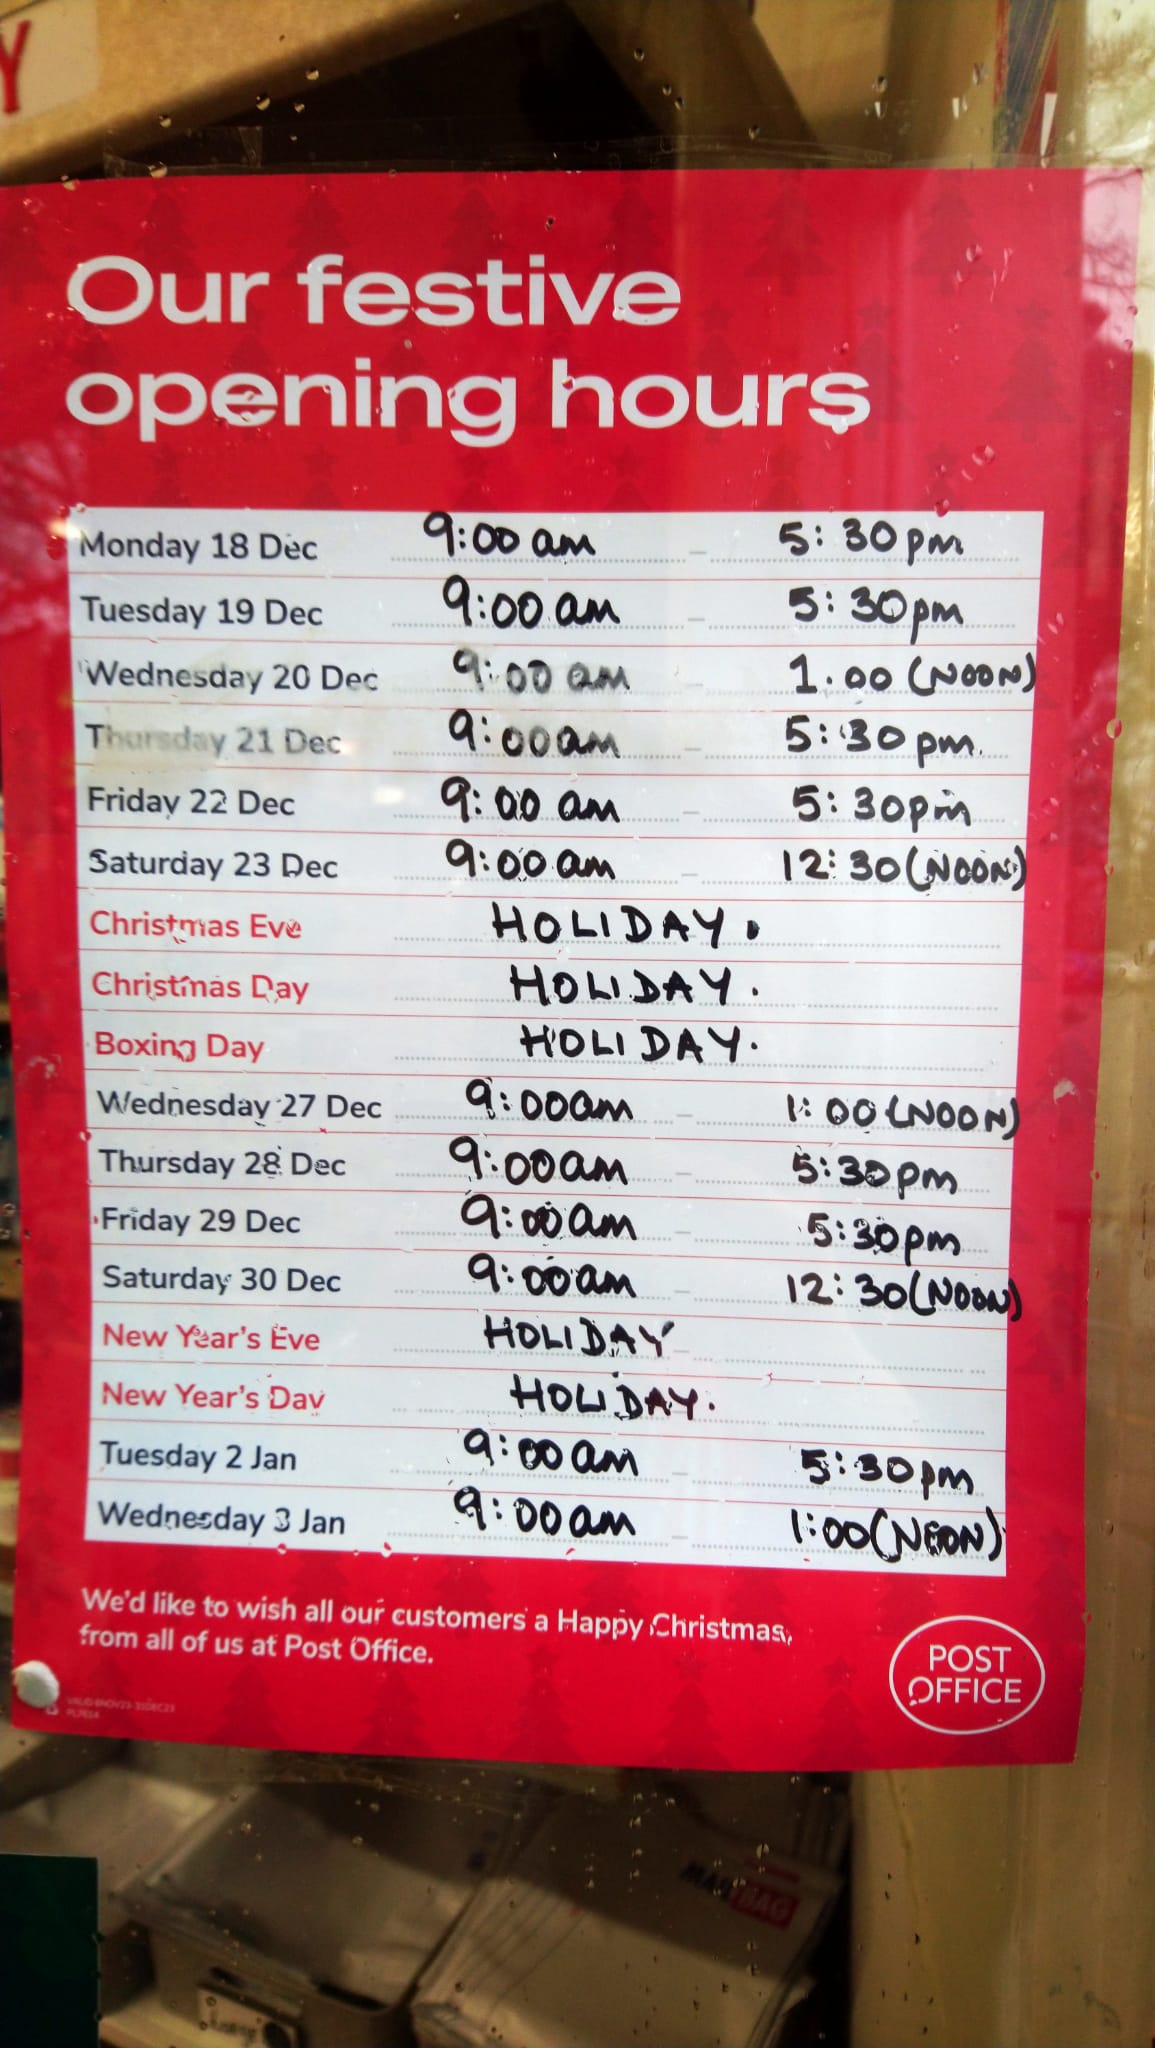 Y
Our festive
opening hours
Monday 18 Dec 9:00 am - 5:30 pm
Tuesday 19 Dec 9:00 am - 5:30 pm
Wednesday 20 Dec 9:00 am - 1.00 (NOON)
Thursday 21 Dec 9:00 am - 5:30 pm.
Friday 22 Dec 9:00 am - 5:30 pm
Saturday 23 Dec 9:00 am - 12:30 (NOON)
Christmas Eve HOLIDAY.
Christmas Day HOLIDAY.
Boxing Day HOLIDAY.
Wednesday 27 Dec 9:00am - 1:00 (NOON)
Thursday 28 Dec 9:00am - 5:30pm
Friday 29 Dec 9:00am - 5:30pm
Saturday 30 Dec 9:00am - 12:30 (NOON)
New Year's Eve HOLIDAY
New Year's Day HOLIDAY.
Tuesday 2 Jan 9:00 am - 5:30 pm
Wednesday 3 Jan 9:00am - 1:00 (NOON)
We'd like to wish all our customers a Happy Christmas,
from all of us at Post Office.
POST
OFFICE